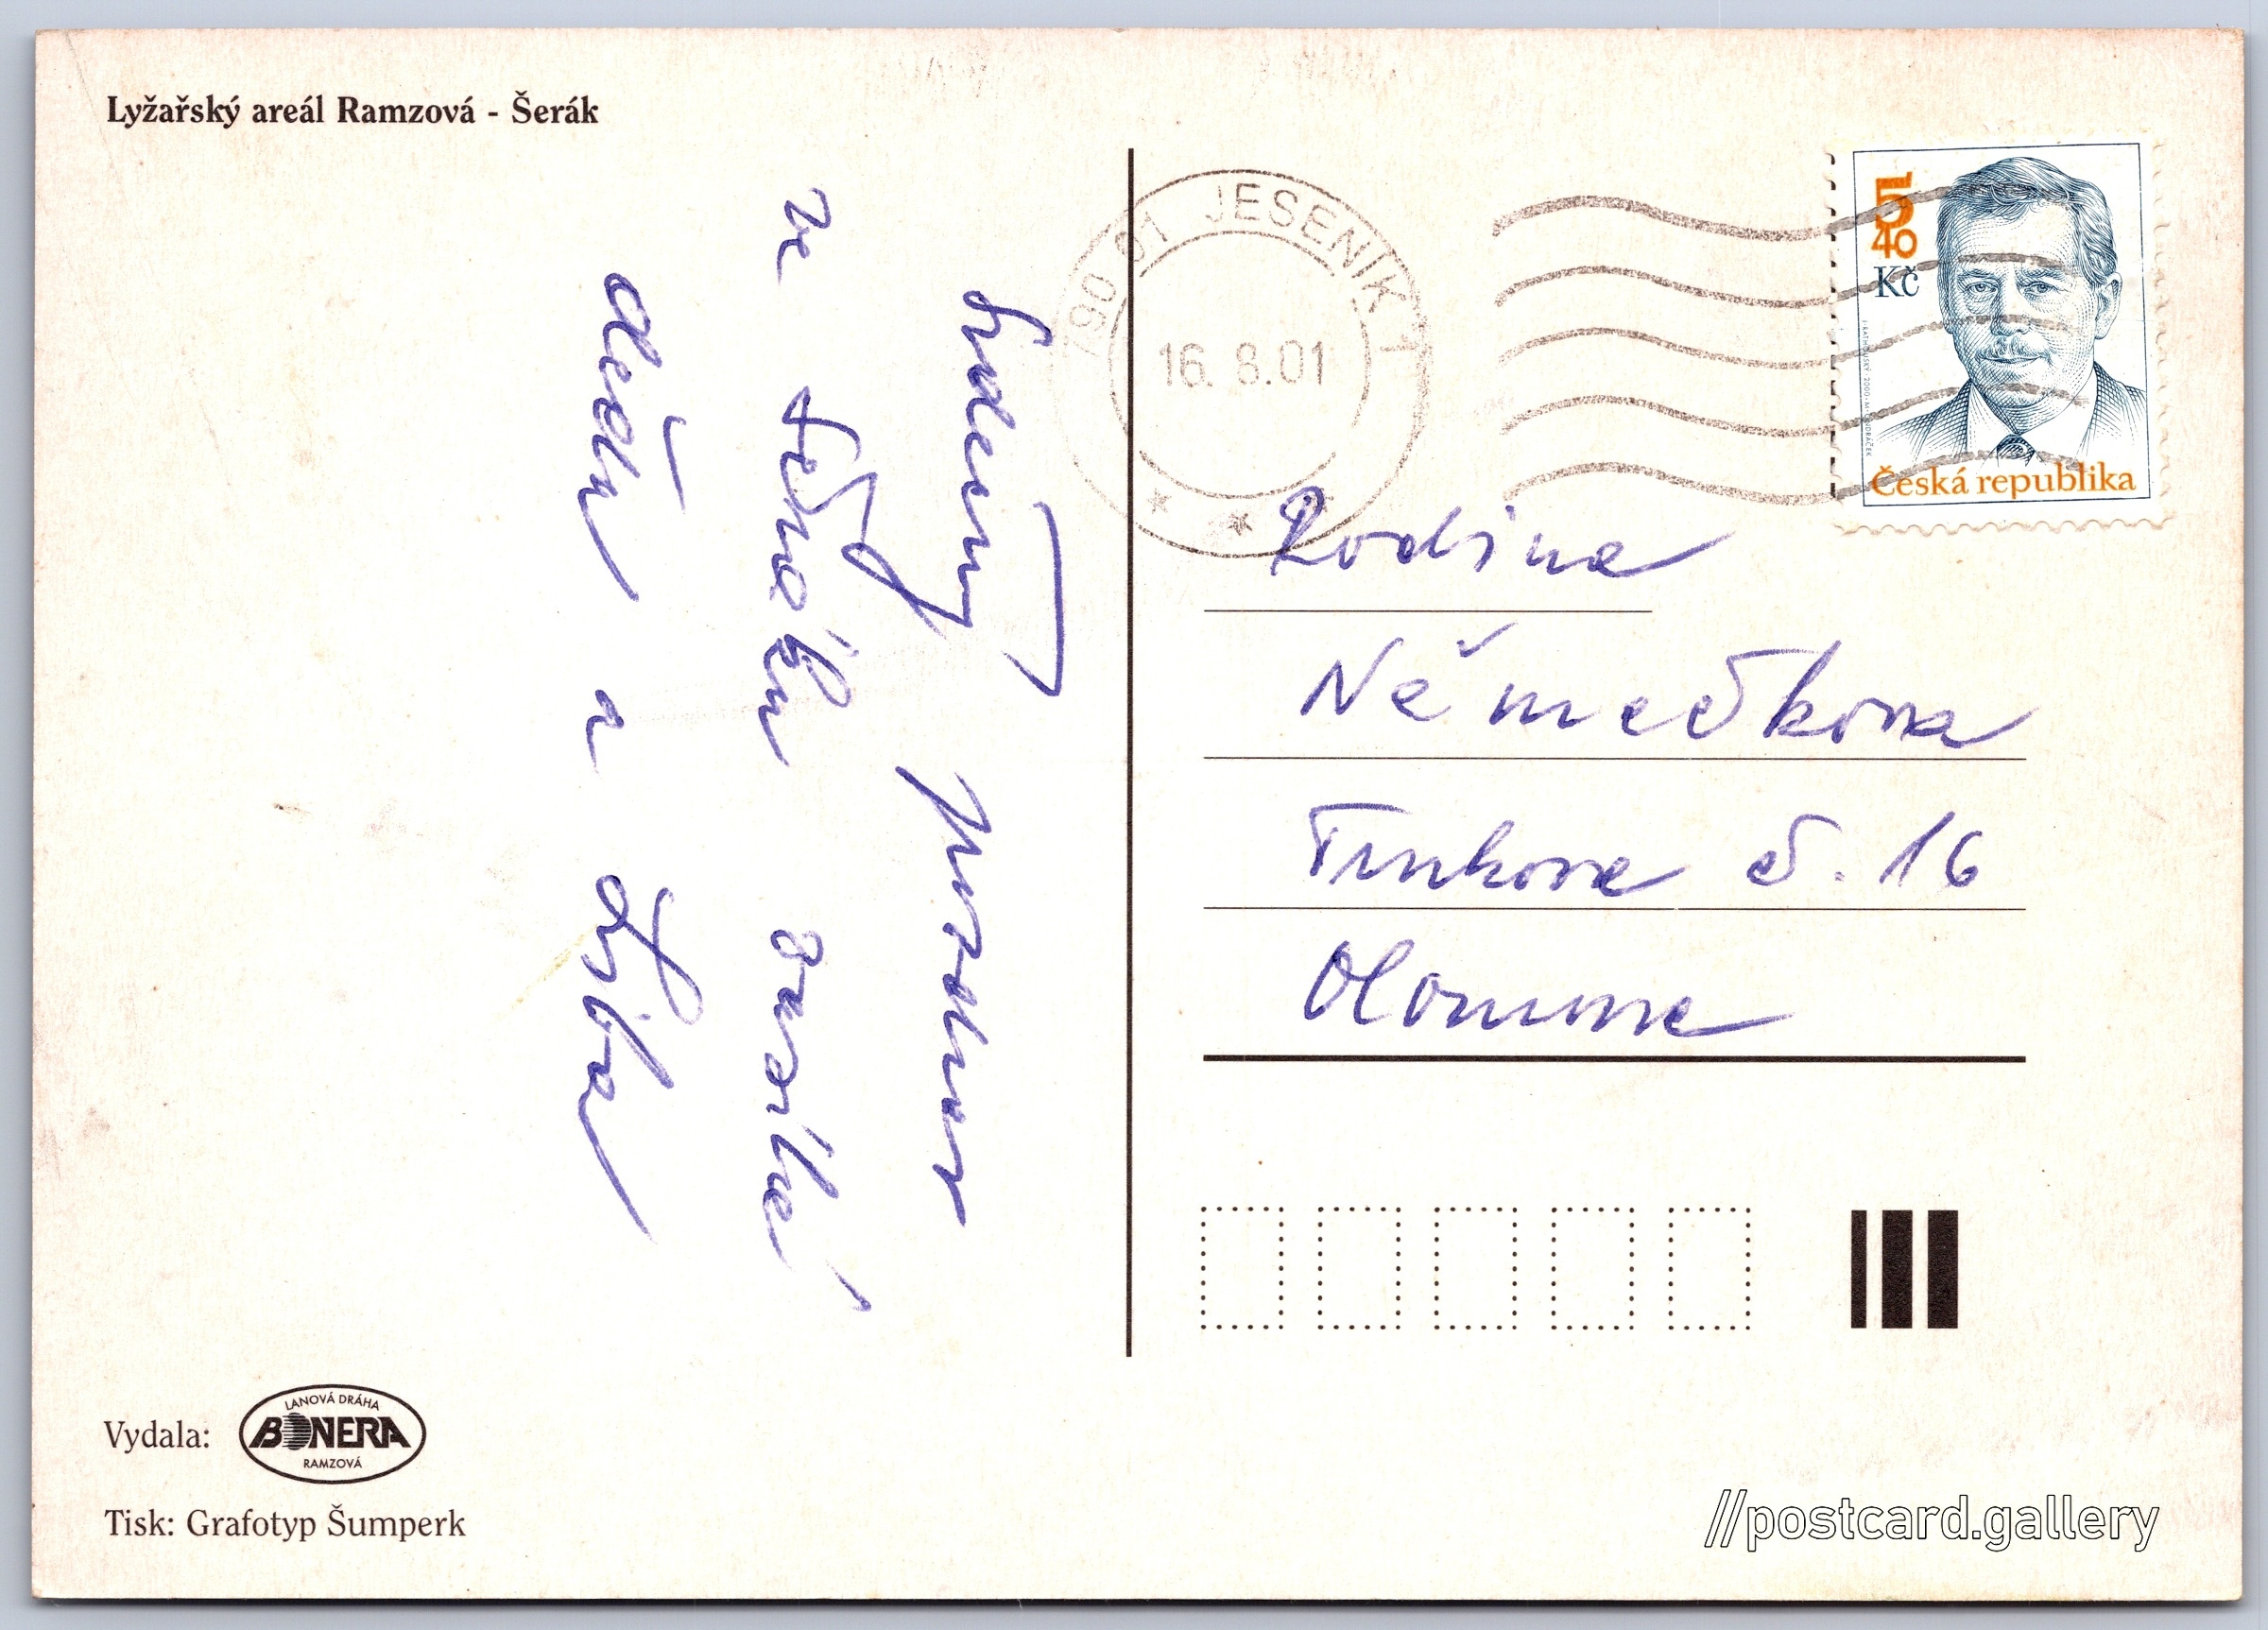 Lyžařský areál Ramzová - Šerák
Srdečný pozdrav
ze
děda a
790 01 JESENÍK 1
16. 8. 01
5
40
Kč
Česká republika
Rodina
Němečkova
č. 16
Olomouc
Vydala:
LANOVÁ DRÁHA
BONERA
RAMZOVÁ
Tisk: Grafotyp Šumperk
//postcard.gallery